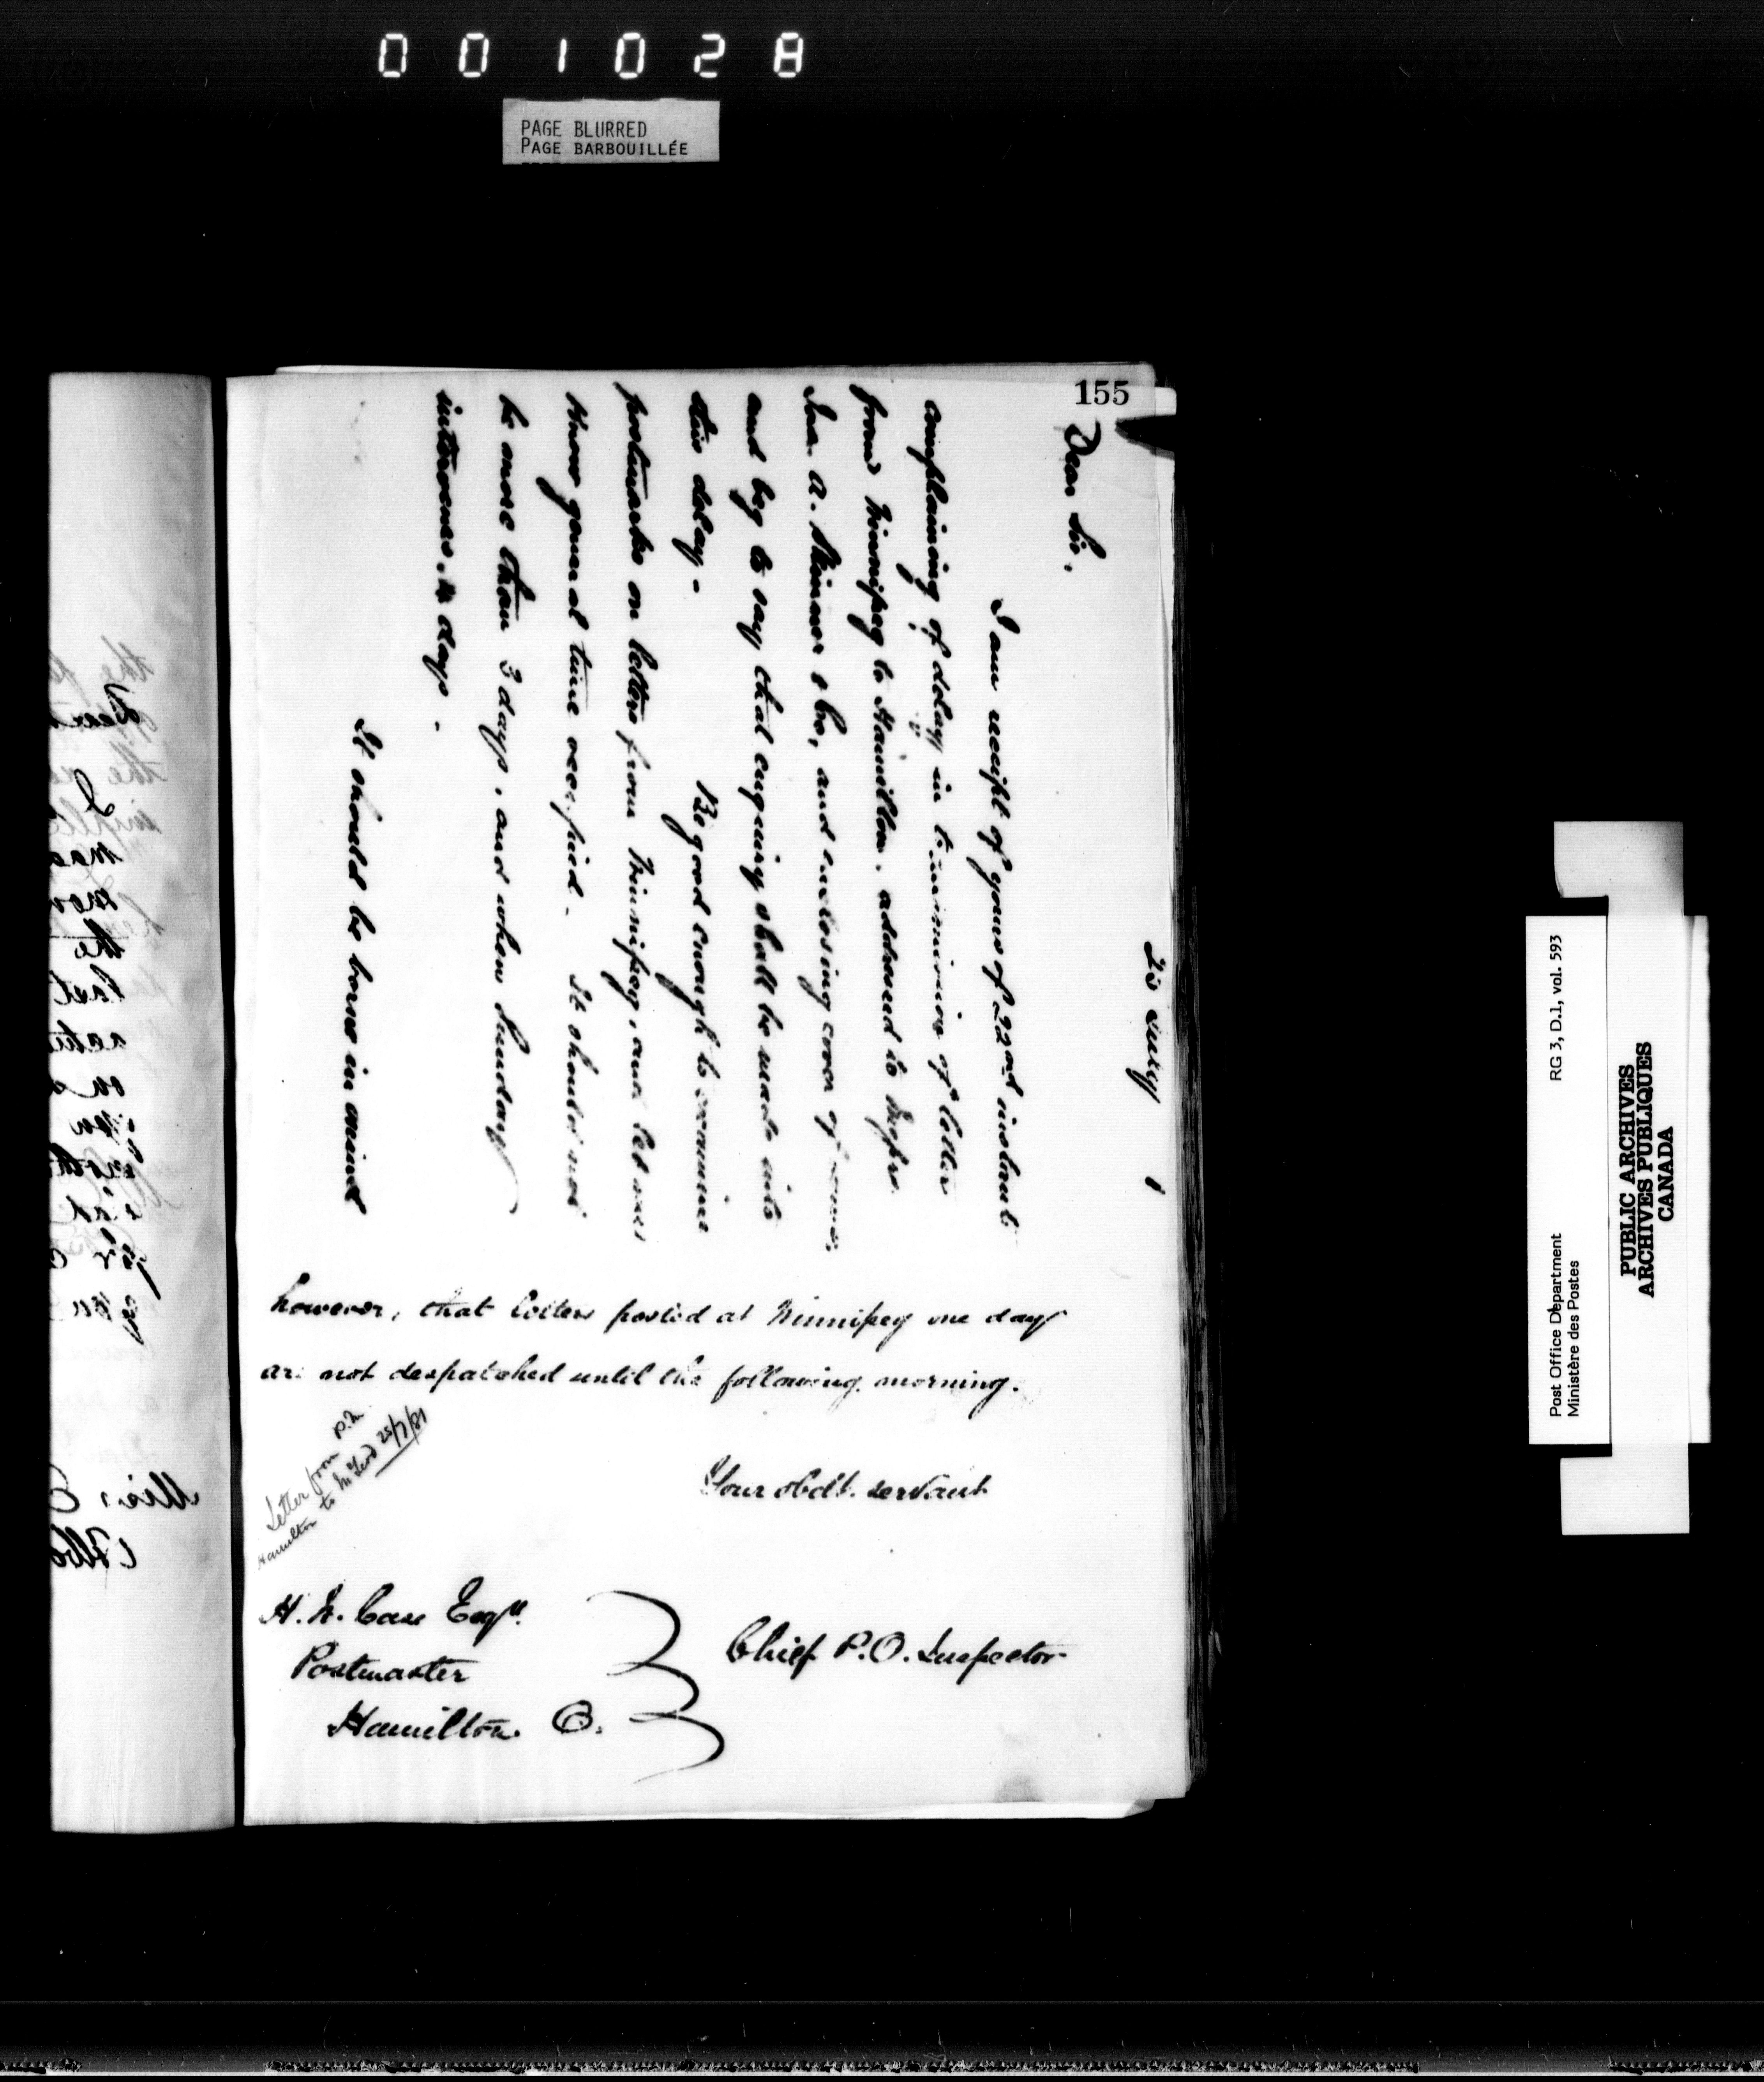 001028
PAGE BLURRED
PAGE BARBOUILLÉE
155
25 July 1
Dear Sir.
I am receipt of yours of 22nd instant
complaining of delay in transmission of letter
from Winnipeg to Hamilton. addressed to Messrs.
Jas. A. Skinner & Co, and enclosing cover of same,
and beg to say that enquiry shall be made into
this delay. - Be good enough to examine
postmarks on letters from Winnipeg, and let me
know general time occupied. - It should not
be more than 3 days, and when Sunday
intervenes, 4 days -
It should be borne in mind
however, that letters posted at Winnipeg one day
are not despatched until the following morning.
Letter from P.M.
Hamilton to 25/7/81
Your obdt. servant
H. N. Case Esqre.
Postmaster
Hamilton. O.
Chief P.O. Inspector
Post Office Department
Ministère des Postes
RG 3, D.1, vol. 593
PUBLIC ARCHIVES
ARCHIVES PUBLIQUES
CANADA